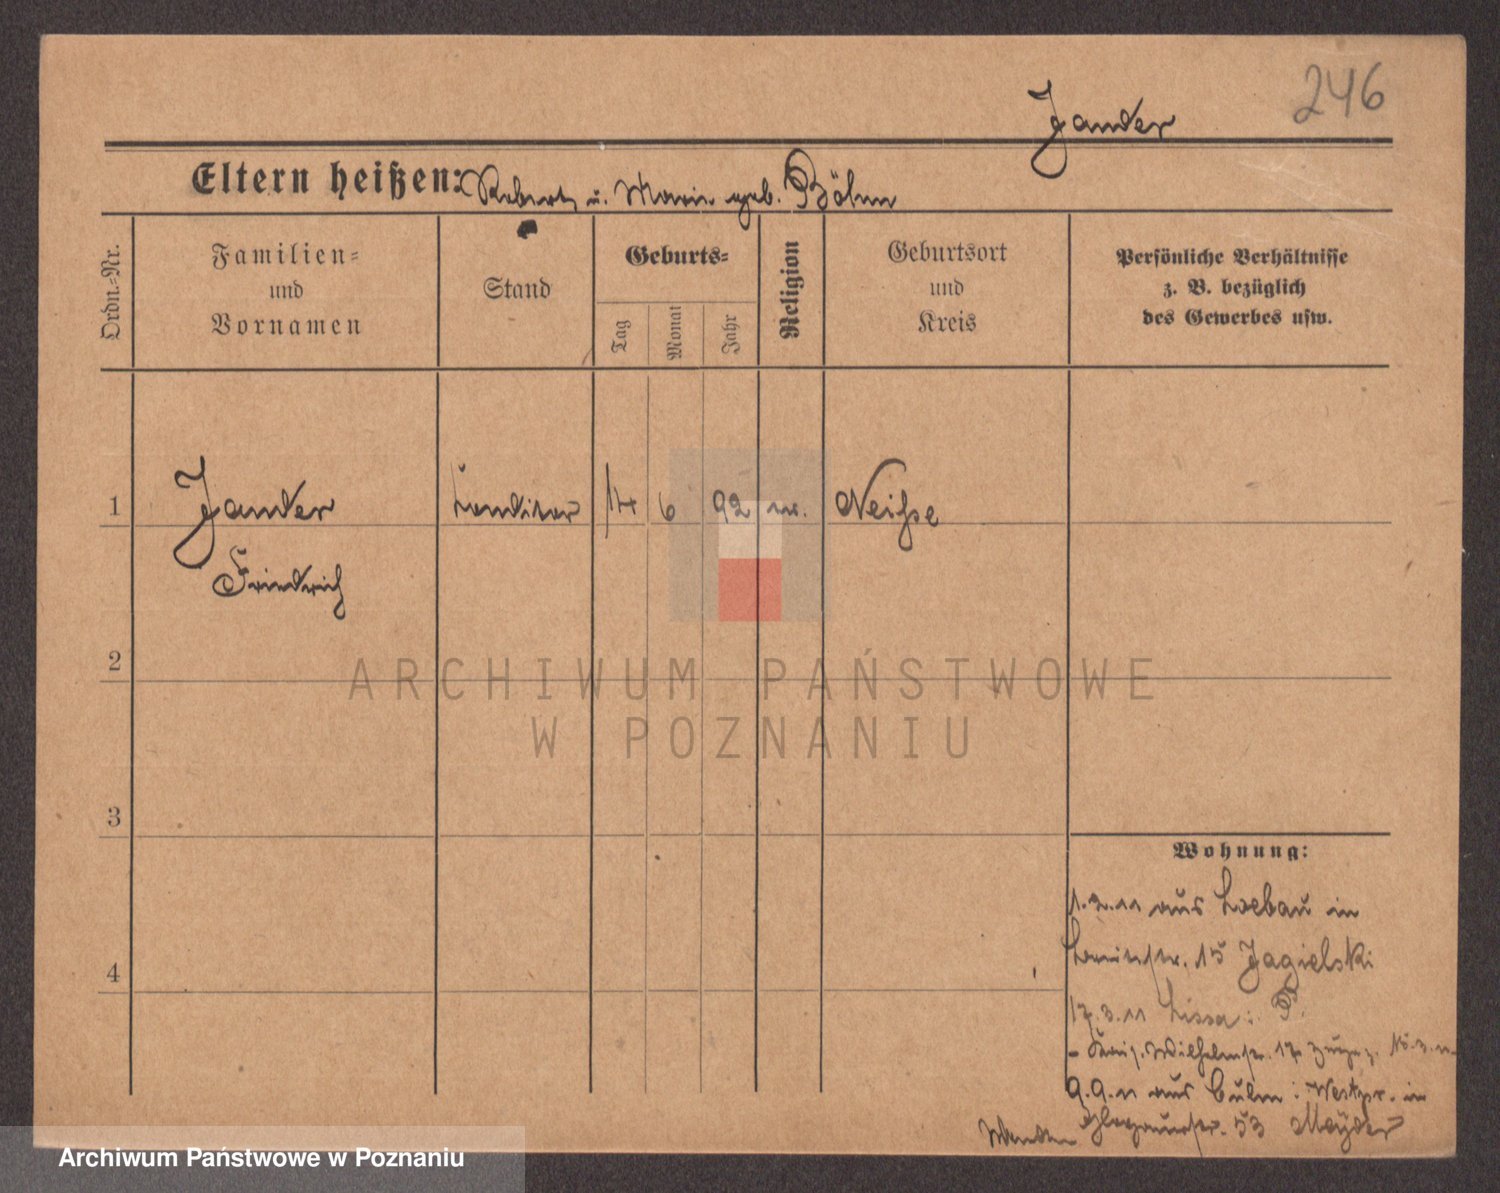 246
Jander
Eltern heißen: Robert u. Marie geb. Böhm
Ordn.-Nr.
Familien-
und
Vornamen
Stand
Geburts-
Tag
Monat
Jahr
Religion
Geburtsort
und
Kreis
Persönliche Verhältnisse
z. B. bezüglich
des Gewerbes usw.
1
Jander
Friedrich
Konditor
14
6
92
Neisse
2
3
4
ARCHIWUM PAŃSTWOWE
W POZNANIU
Wohnung:
1.2.11 aus Loebau in
15 Jagielski
17.3.11 Lissa i. P.
Wilhelmstr. 17
9.9.11 aus Culm i. Westpr. in
Glogauerstr. 53 Meyder
Wenden
Archiwum Państwowe w Poznaniu